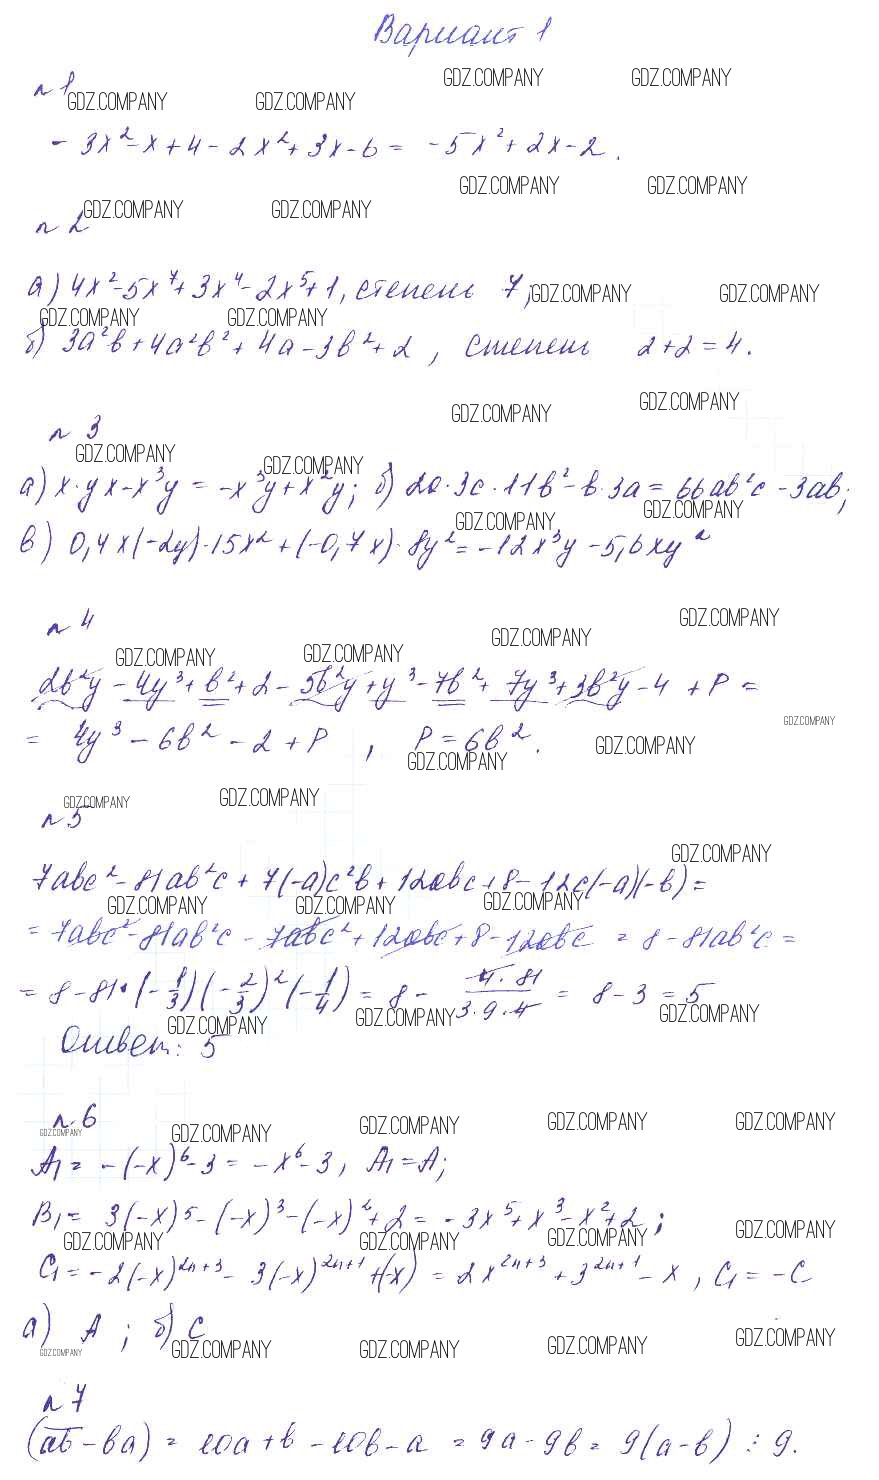 Вариант 1
GDZ.COMPANY GDZ.COMPANY
n 1
GDZ.COMPANY GDZ.COMPANY
- 3x² - x + 4 - 2x² + 3x - 6 = -5x² + 2x - 2.
GDZ.COMPANY GDZ.COMPANY
GDZ.COMPANY GDZ.COMPANY
n 2
а) 4x² - 5x⁷ + 3x⁴ - 2x⁵ + 1, степень 7; GDZ.COMPANY GDZ.COMPANY
GDZ.COMPANY GDZ.COMPANY
б) 3a²b + 4a²b² + 4a - 3b² + 2, степень 2 + 2 = 4.
GDZ.COMPANY GDZ.COMPANY
n 3
GDZ.COMPANY GDZ.COMPANY
а) x·yx - x³y = -x³y + x²y; б) 2a·3c·11b² - b·3a = 66ab²c - 3ab;
GDZ.COMPANY GDZ.COMPANY
в) 0,4x(-2y)·15x² + (-0,7x)·8y² = -12x³y - 5,6xy²
n 4 GDZ.COMPANY
GDZ.COMPANY GDZ.COMPANY GDZ.COMPANY
2b²y - 4y³ + b² + 2 - 5b²y + y³ - 7b² + 7y³ + 3b²y - 4 + P =
GDZ.COMPANY
= 4y³ - 6b² - 2 + P, P = 6b². GDZ.COMPANY
GDZ.COMPANY
GDZ.COMPANY GDZ.COMPANY
n 5
GDZ.COMPANY
7abc² - 81ab²c + 7(-a)c²b + 12abc + 8 - 12c(-a)(-b) =
GDZ.COMPANY GDZ.COMPANY GDZ.COMPANY
= 7abc² - 81ab²c - 7abc² + 12abc + 8 - 12abc = 8 - 81ab²c =
= 8 - 81·(-1/3)(-2/3)²(-1/4) = 8 - 4·81/3·9·4 = 8 - 3 = 5
GDZ.COMPANY GDZ.COMPANY GDZ.COMPANY
Ответ: 5
n 6
GDZ.COMPANY GDZ.COMPANY GDZ.COMPANY GDZ.COMPANY GDZ.COMPANY
A₁ = -(-x)⁶ - 3 = -x⁶ - 3, A₁ = A;
B₁ = 3(-x)⁵ - (-x)³ - (-x)² + 2 = -3x⁵ + x³ - x² + 2;
GDZ.COMPANY GDZ.COMPANY GDZ.COMPANY GDZ.COMPANY
C₁ = -2(-x)²ⁿ⁺³ - 3(-x)²ⁿ⁺¹ + (-x) = 2x²ⁿ⁺³ + 3²ⁿ⁺¹ - x, C₁ = -C
а) A; б) C
GDZ.COMPANY GDZ.COMPANY GDZ.COMPANY GDZ.COMPANY GDZ.COMPANY
n 7
(ab - ba) = 10a + b - 10b - a = 9a - 9b = 9(a - b) ⋮ 9.